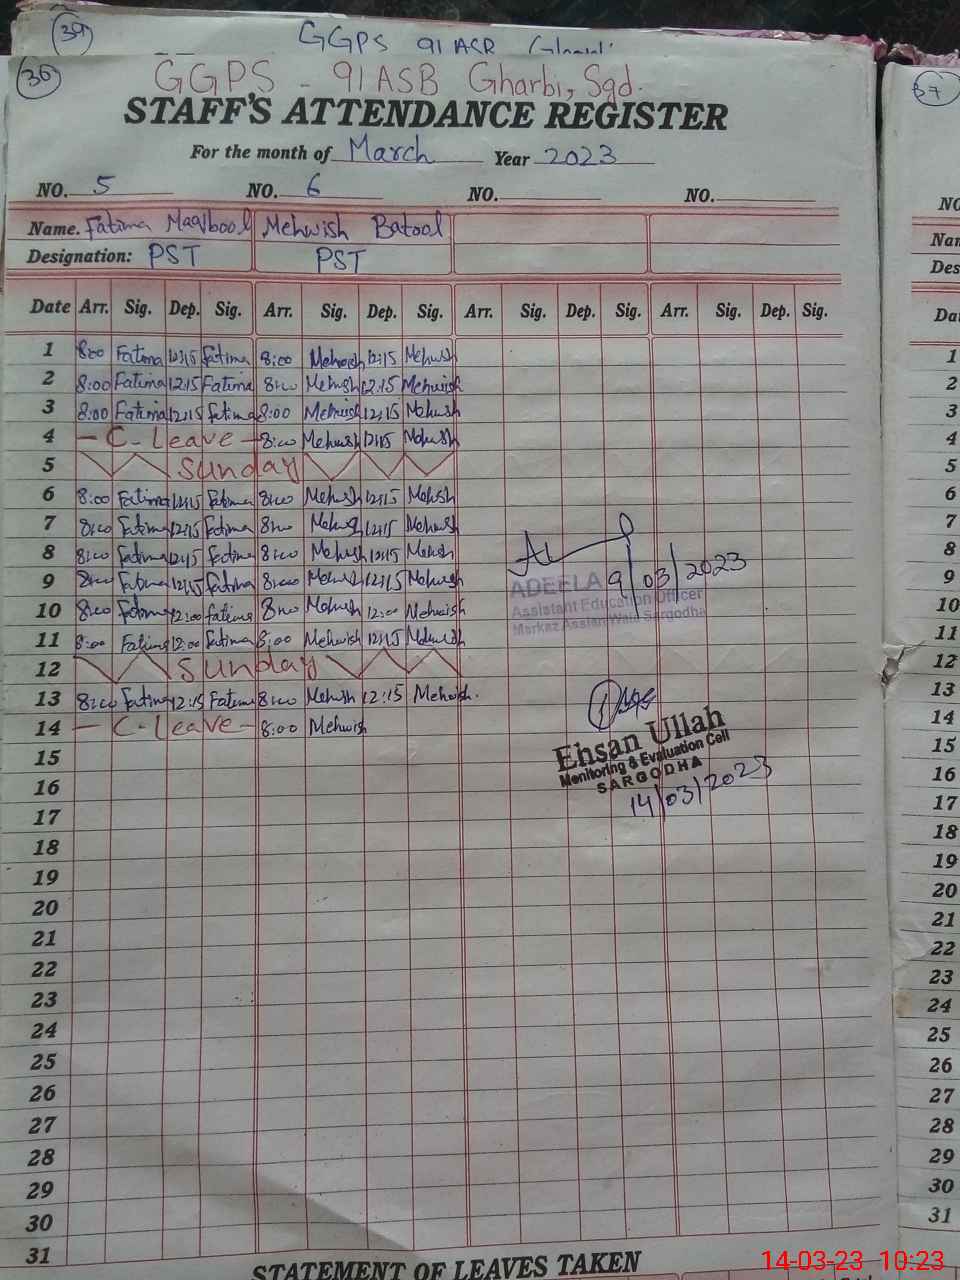 39 GGPS 91 ASB
36 GGPS - 91ASB Gharbi, Sgd. 37
STAFF'S ATTENDANCE REGISTER
For the month of March Year 2023
NO. 5 NO. 6 NO. NO. NO
Name. Fatima Maqbool Mehwish Batool Nam
Designation: PST PST Des
Date Arr. Sig. Dep. Sig. Arr. Sig. Dep. Sig. Arr. Sig. Dep. Sig. Arr. Sig. Dep. Sig. Da
1 8:00 Fatima 12:15 Fatima 8:00 Mehwish 12:15 Mehwish 1
2 8:00 Fatima 12:15 Fatima 8:00 Mehwish 12:15 Mehwish 2
3 8:00 Fatima 12:15 Fatima 8:00 Mehwish 12:15 Mehwish 3
4 - C-Leave - 8:00 Mehwish 12:15 Mehwish 4
5 Sunday 5
6 8:00 Fatima 12:15 Fatima 8:00 Mehwish 12:15 Mehwish 6
7 8:00 Fatima 12:15 Fatima 8:00 Mehwish 12:15 Mehwish 7
8 8:00 Fatima 12:15 Fatima 8:00 Mehwish 12:15 Mehwish 8
9 8:00 Fatima 12:15 Fatima 8:00 Mehwish 12:15 Mehwish 9
9/03/2023
ADEELA
Assistant Education Officer
Markaz Assian Wala Sargodha
10 8:00 Fatima 12:00 Fatima 8:00 Mehwish 12:00 Mehwish 10
11 8:00 Fatima 12:00 Fatima 8:00 Mehwish 12:15 Mehwish 11
12 Sunday 12
13 8:00 Fatima 12:15 Fatima 8:00 Mehwish 12:15 Mehwish. 13
14 - C-Leave - 8:00 Mehwish 14
Ehsan Ullah
Monitoring & Evaluation Cell
SARGODHA
14/03/2023
15 15
16 16
17 17
18 18
19 19
20 20
21 21
22 22
23 23
24 24
25 25
26 26
27 27
28 28
29 29
30 30
31 31
STATEMENT OF LEAVES TAKEN
14-03-23 10:23